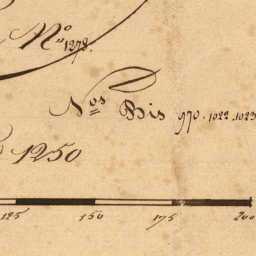 No 1278.
Nos Bis 970. 1022. 1023
1250
125 150 175 200